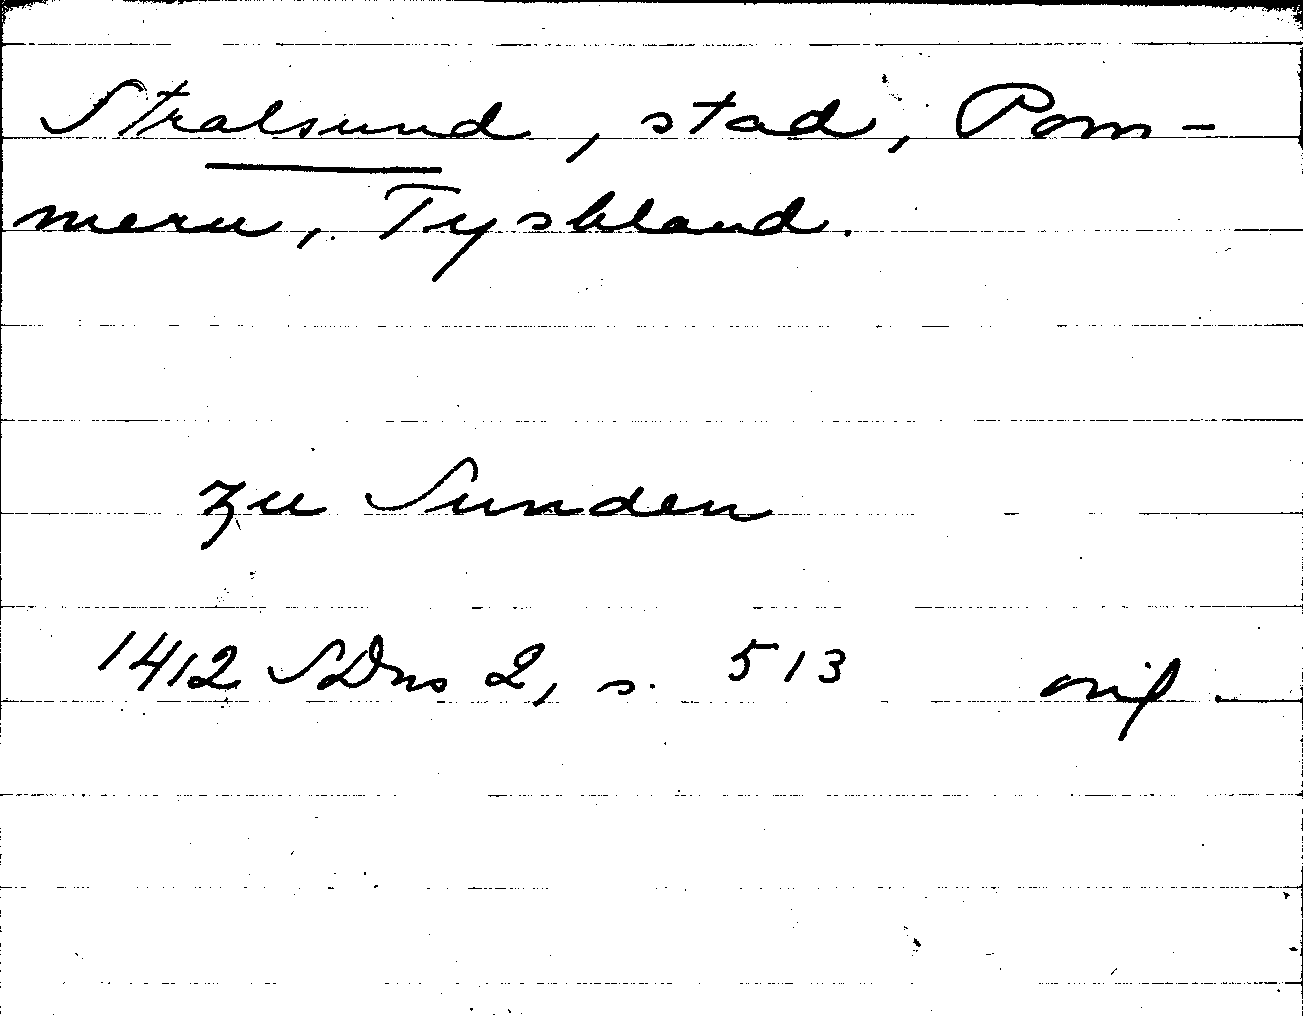 Stralsund, stad, Pom-
mern, Tyskland.
zu Sunden
1412 SDns 2, s. 513 orig.